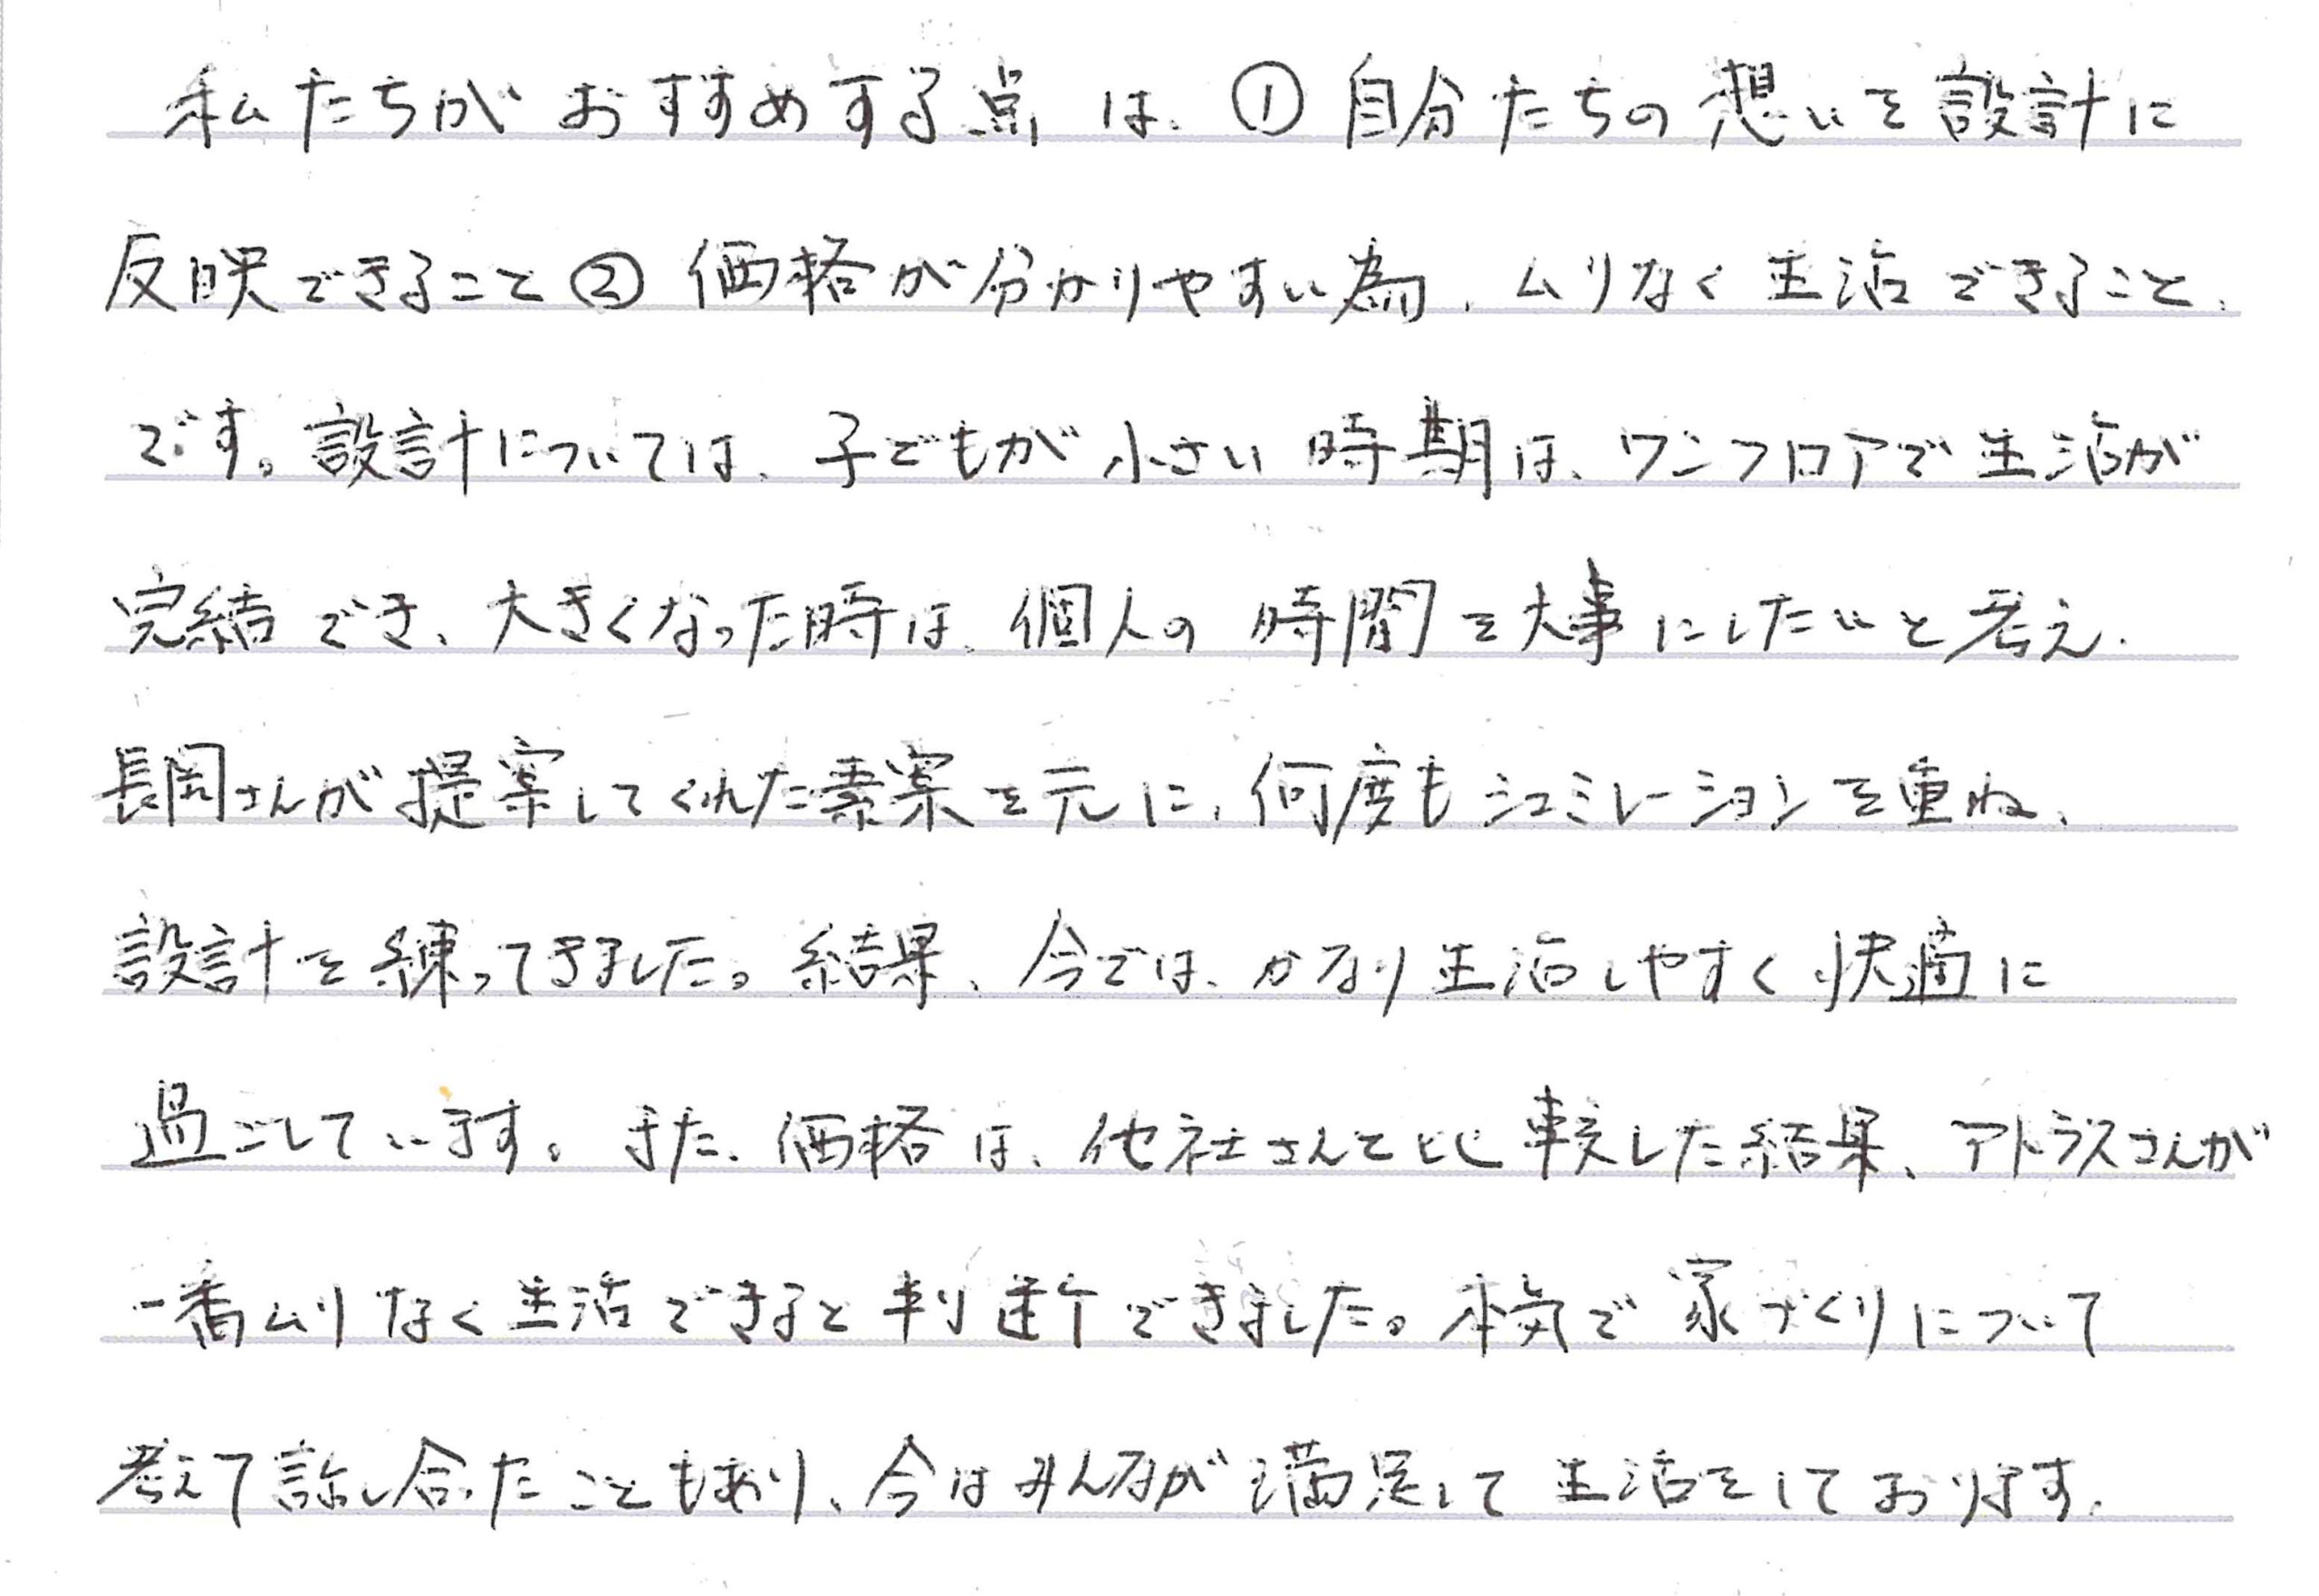 私たちがおすすめする点は、①自分たちの想いを設計に
反映できること②価格が分かりやすい為、ムリなく生活できること、
です。設計については、子どもが小さい時期は、ワンフロアで生活が
完結でき、大きくなった時は、個人の時間を大事にしたいと考え、
長岡さんが提案してくれた素案を元に、何度もシュミレーションを重ね、
設計を練ってきました。結果、今では、かなり生活しやすく快適に
過ごしています。また、価格は、他社さんと比較した結果、アトラスさんが
一番ムリなく生活できると判断できました。本気で家づくりについて
考えて話し合ったこともあり、今はみんなが満足して生活をしております。